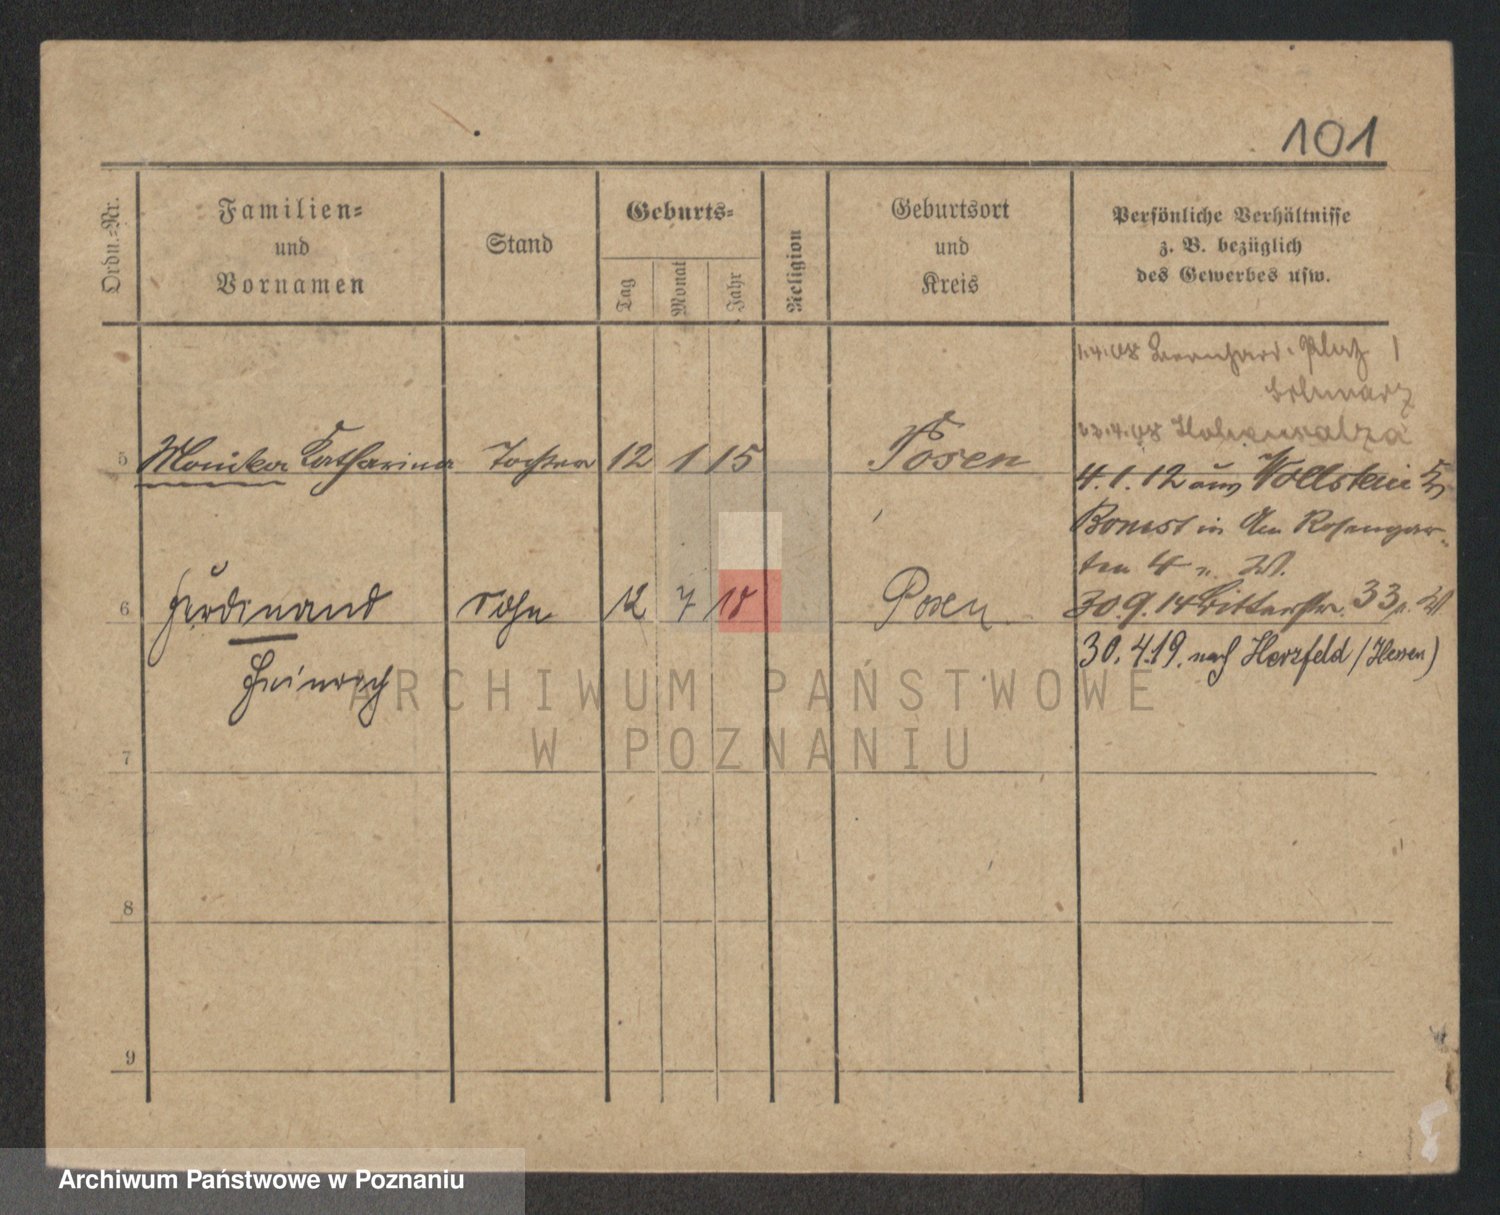 101
Ordn.-Nr.
Familien-
und
Vornamen
Stand
Geburts-
Tag
Monat
Jahr
Religion
Geburtsort
und
Kreis
Persönliche Verhältnisse
z. B. bezüglich
des Gewerbes usw.
1.4.08 Bernhard. Platz 1
Hohensalza
5 Monika Katharina Tochter 12 1 15 Posen
4.1.12 aus Wollstein
Bomst in Am Rosengar-
ten 4
6 Ferdinand Sohn 12 7 18 Posen
30.9.14 Ritterstr. 33
Heinrich
30.4.19. nach Herzfeld (Hessen)
7
8
9
ARCHIWUM PAŃSTWOWE
W POZNANIU
Archiwum Państwowe w Poznaniu